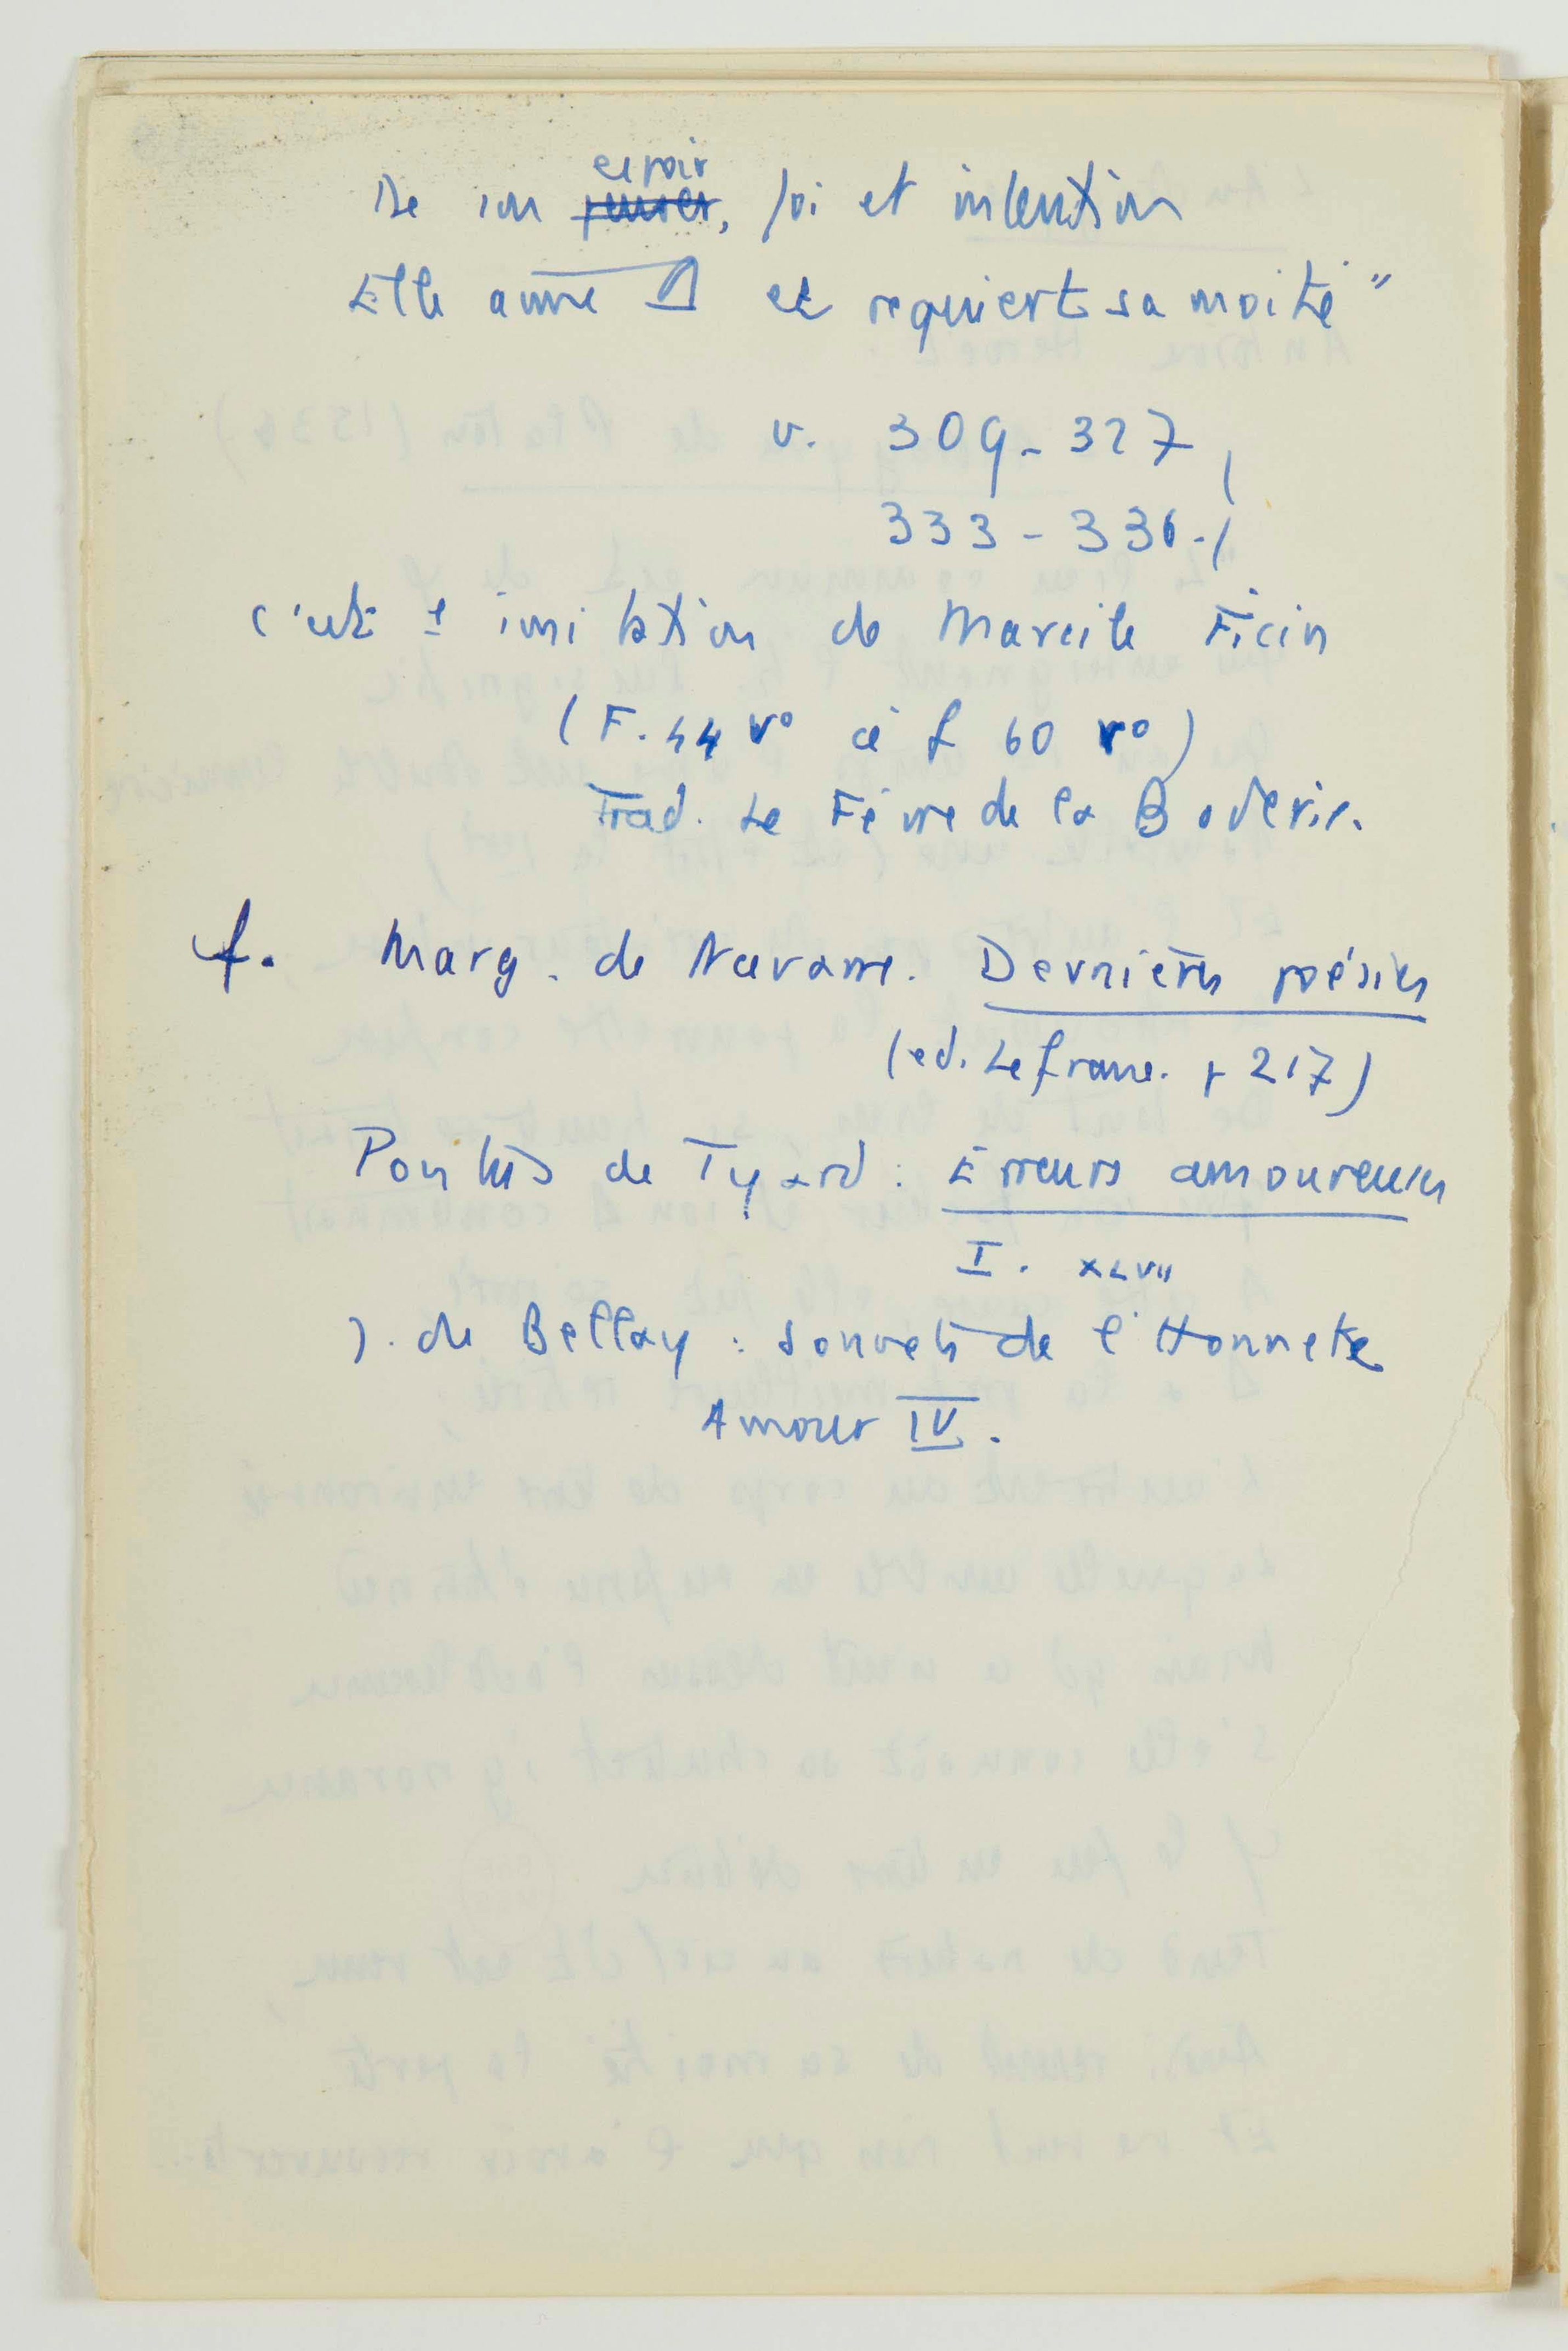 espoir
De son penser, foi et intention
Elle aime Δ et requiert sa moitié"
v. 309-327,
333-336.
c'est 1 imitation de Marcile Ficin
(F. 44 v° à f 60 r°)
Trad. Le Fèvre de la Boderie.
cf. Marg. de Navarre. Dernières poésies
(ed. Lefranc. p 217)
Pontus de Tyard : Erreurs amoureuses
I. XLVII
J. du Bellay : Sonnets de l'Honnete
Amour IV.